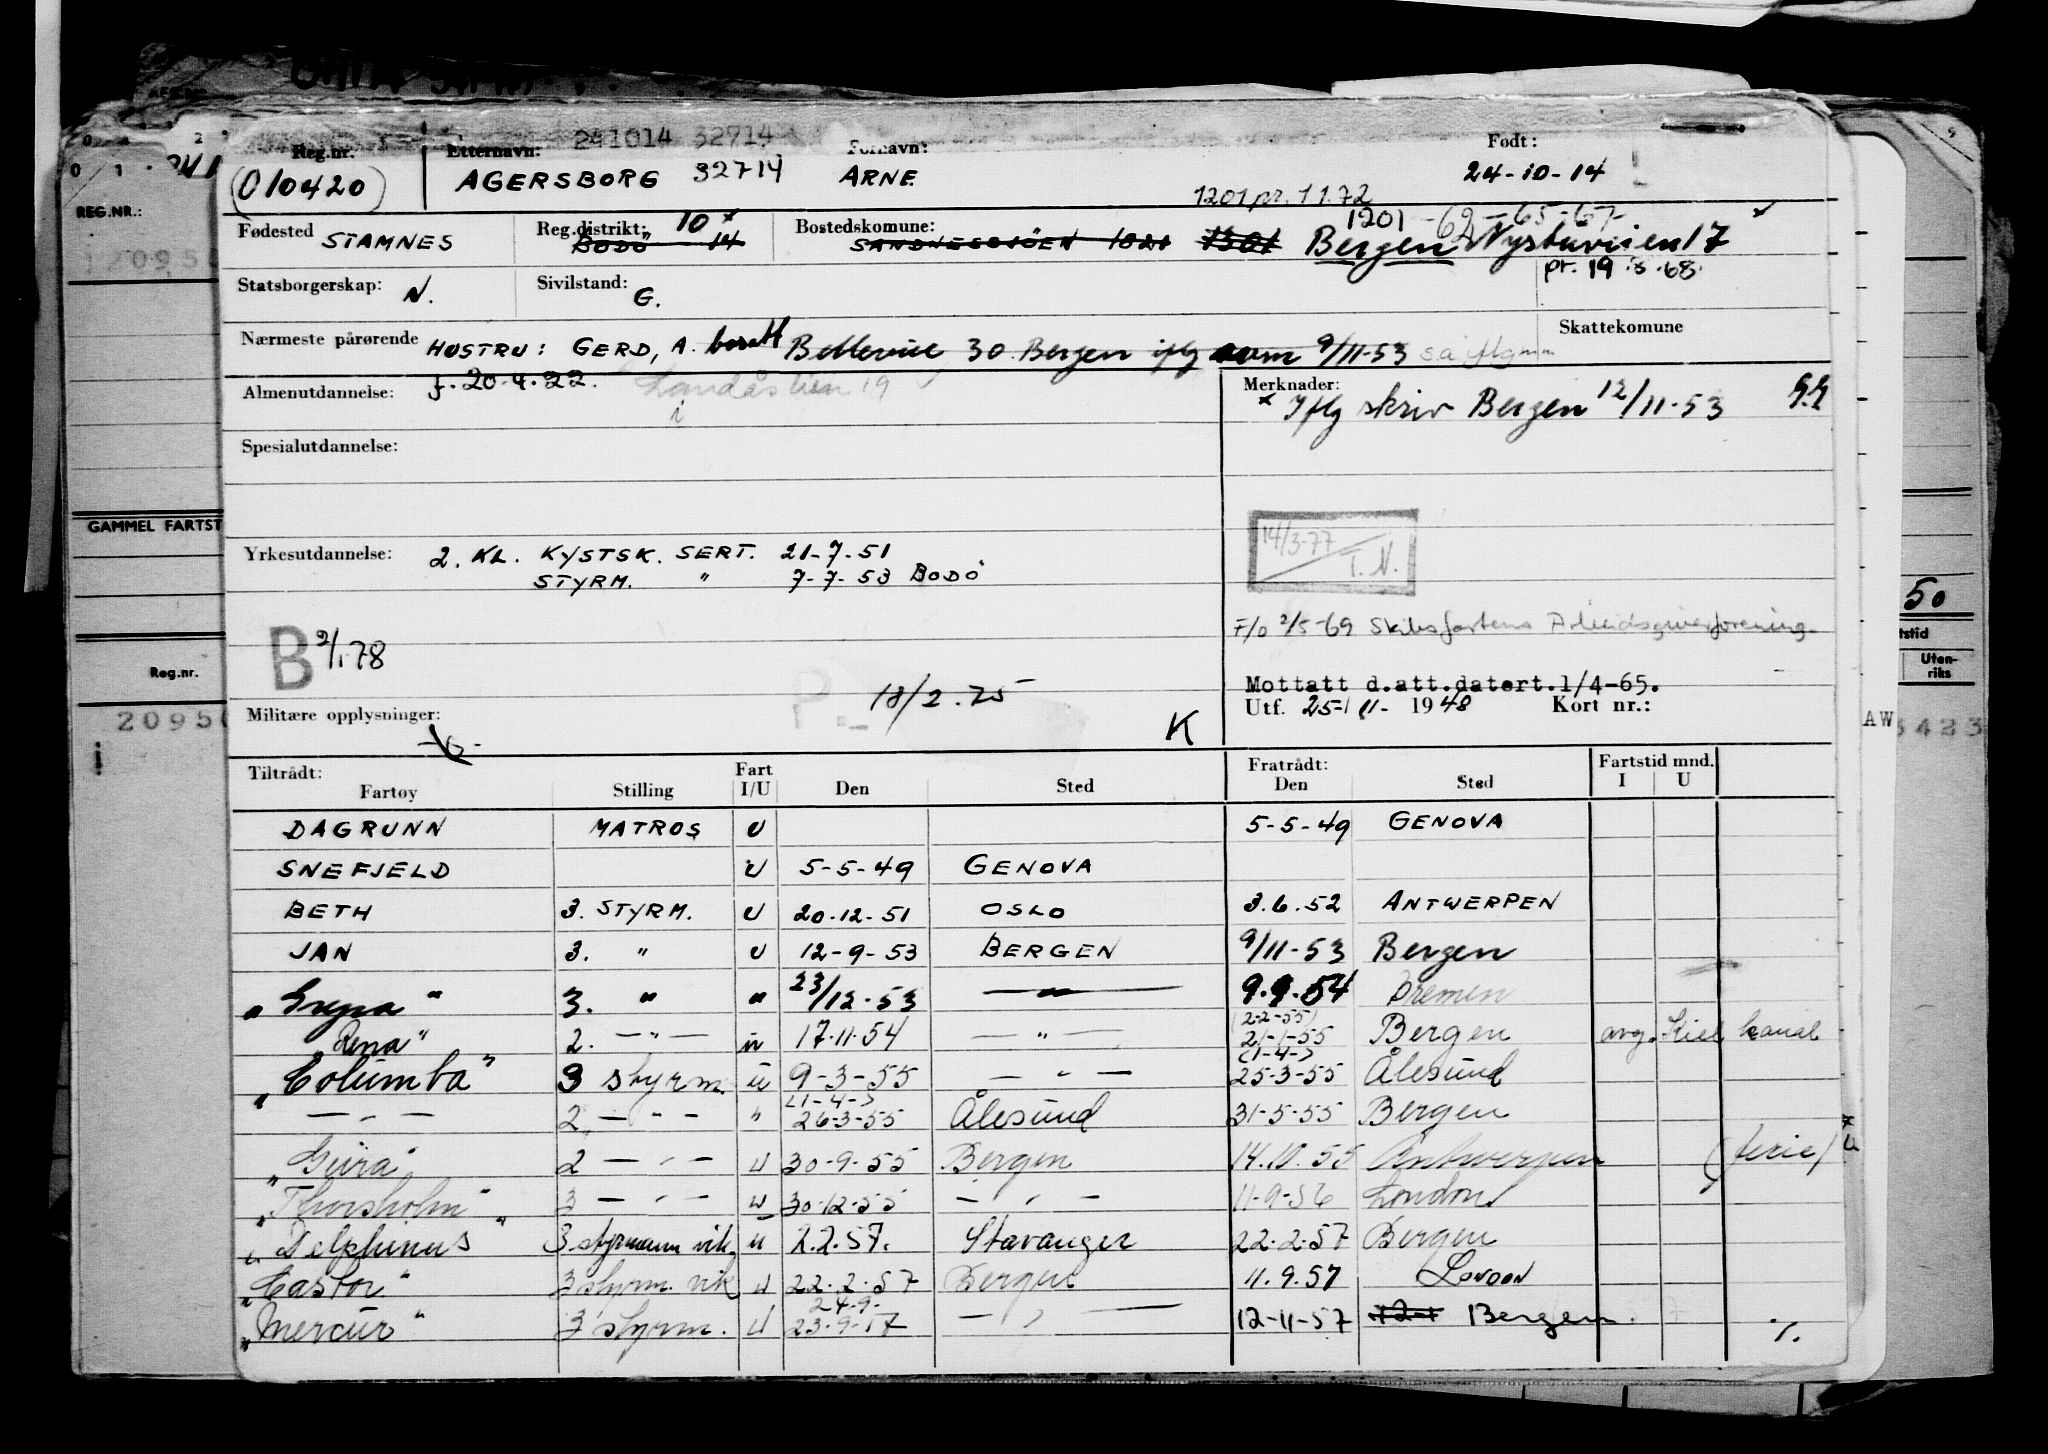 241014 32714
Reg.nr. Etternavn: Fornavn: Født:
(010420) AGERSBORG 32714 ARNE 24-10-14
1201 pr. 1 1.72
Fødested STAMNES Reg.distrikt: 10 x Bostedskommune: 1201 -62-65-67-
BODÖ 14 SANDNESSJÖEN 1301 Bergen Nystuveien 17
pr. 19.8.68.
Statsborgerskap: N. Sivilstand: G.
Nærmeste pårørende HUSTRU: GERD, A. bosatt Bellevue 30 Bergen iflg 9/11-53
Skattekomune
f. 20.4.22. Landåslien 19
Almenutdannelse:
Merknader:
x Iflg skriv Bergen 12/11-53
Spesialutdannelse:
14/3-77 T.N.
Yrkesutdannelse: 2. KL. KYSTSK. SERT. 21-7-51
STYRM. " 7-7-53 BODÖ
F/o 2/5-69 Skibsfartens Arbeidsgiverforening.
B 9/1 78
P.- 18/2.75
Mottatt d.att.datert.1/4-65.
Utf. 25-11- 1948 Kort nr.:
Militære opplysninger:
K
Tiltrådt: Fart Fratrådt: Fartstid mnd.
Fartøy Stilling I/U Den Sted Den Sted I U
DAGRUNN MATROS U 5-5-49 GENOVA
SNEFJELD U 5-5-49 GENOVA
BETH 3. STYRM. U 20-12-51 OSLO 3.6.52 ANTWERPEN
JAN 3. " U 12-9-53 BERGEN 9/11-53 Bergen
" " 3. " " 23/12-53 — " — 9.9.54 Bremen
(2-2-55)
"Rena" 2. — " — u 17.11.54 — " — 21-1-55 Bergen avg. Kiel kanal
(1-4-)
"Columba" 3 styrm. u 9-3-55 — " — 25-3-55 Ålesund
(1-4-)
— " — 2. — " — " 26-3-55 Ålesund 31-5-55 Bergen
" " 2 — " — U 30-9-55 Bergen 14.10.55 Antwerpen (ferie)
"Thorsholm" 3 — " — U 30-12-55 — " — 11-9-56 London
"Delphinus" 3 styrmann vik. u 2.2.57. Stavanger 22-2-57 Bergen
"Castor" 3 styrm. vik U 22.2.57 Bergen 11.9.57 LONDON
24-9-
"Mercur" 3 styrm. U 23-9-57 — " — 12-11-57 Bergen.
REG.NR.:
GAMMEL FARTST
Reg.nr.
50
Uten-
riks
AW